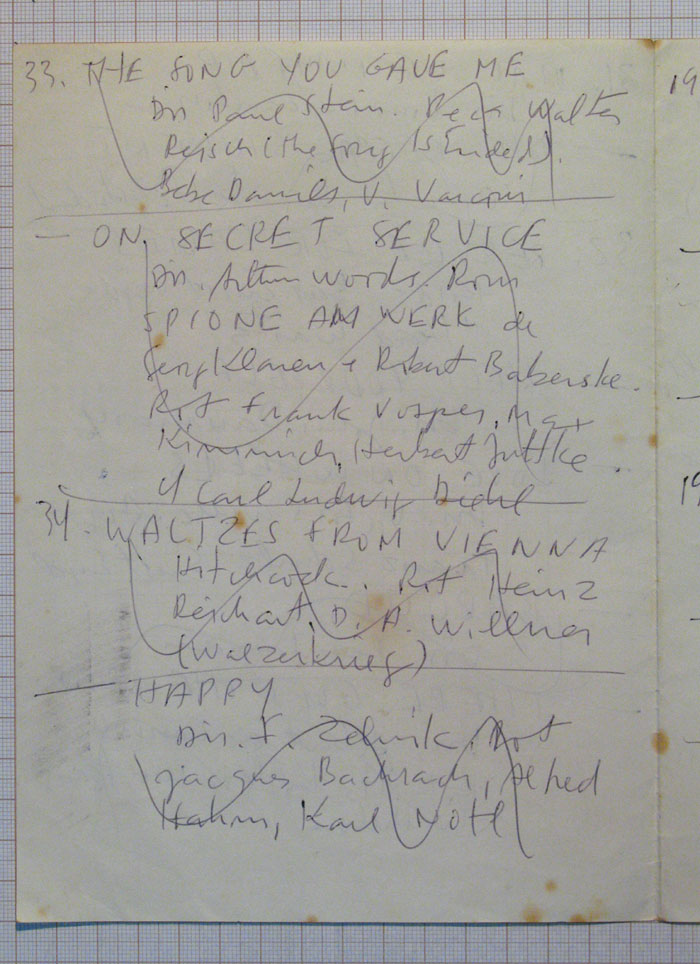 33. THE SONG YOU GAVE ME
Dir Paul Stein. Walter
Reisch (the song is Ended).
Bebe Daniels, V. Varconi
— ON SECRET SERVICE
Dir. Arthur Woods. Rem
SPIONE AM WERK de
Georg Klaren + Robert Baberske.
Rot Frank Vosper, Max
Kimmich, Herbert Juttke
y Carl Ludwig Diehl
34. WALTZES FROM VIENNA
Hitchcock. Rot Heinz
Reichart, D. A. Willner
(Walzerkrieg)
— HAPPY
Dir. F. Zelnik. Rot
Jacques Bachrach, Alfred
Hahm, Karl Notl
19
19